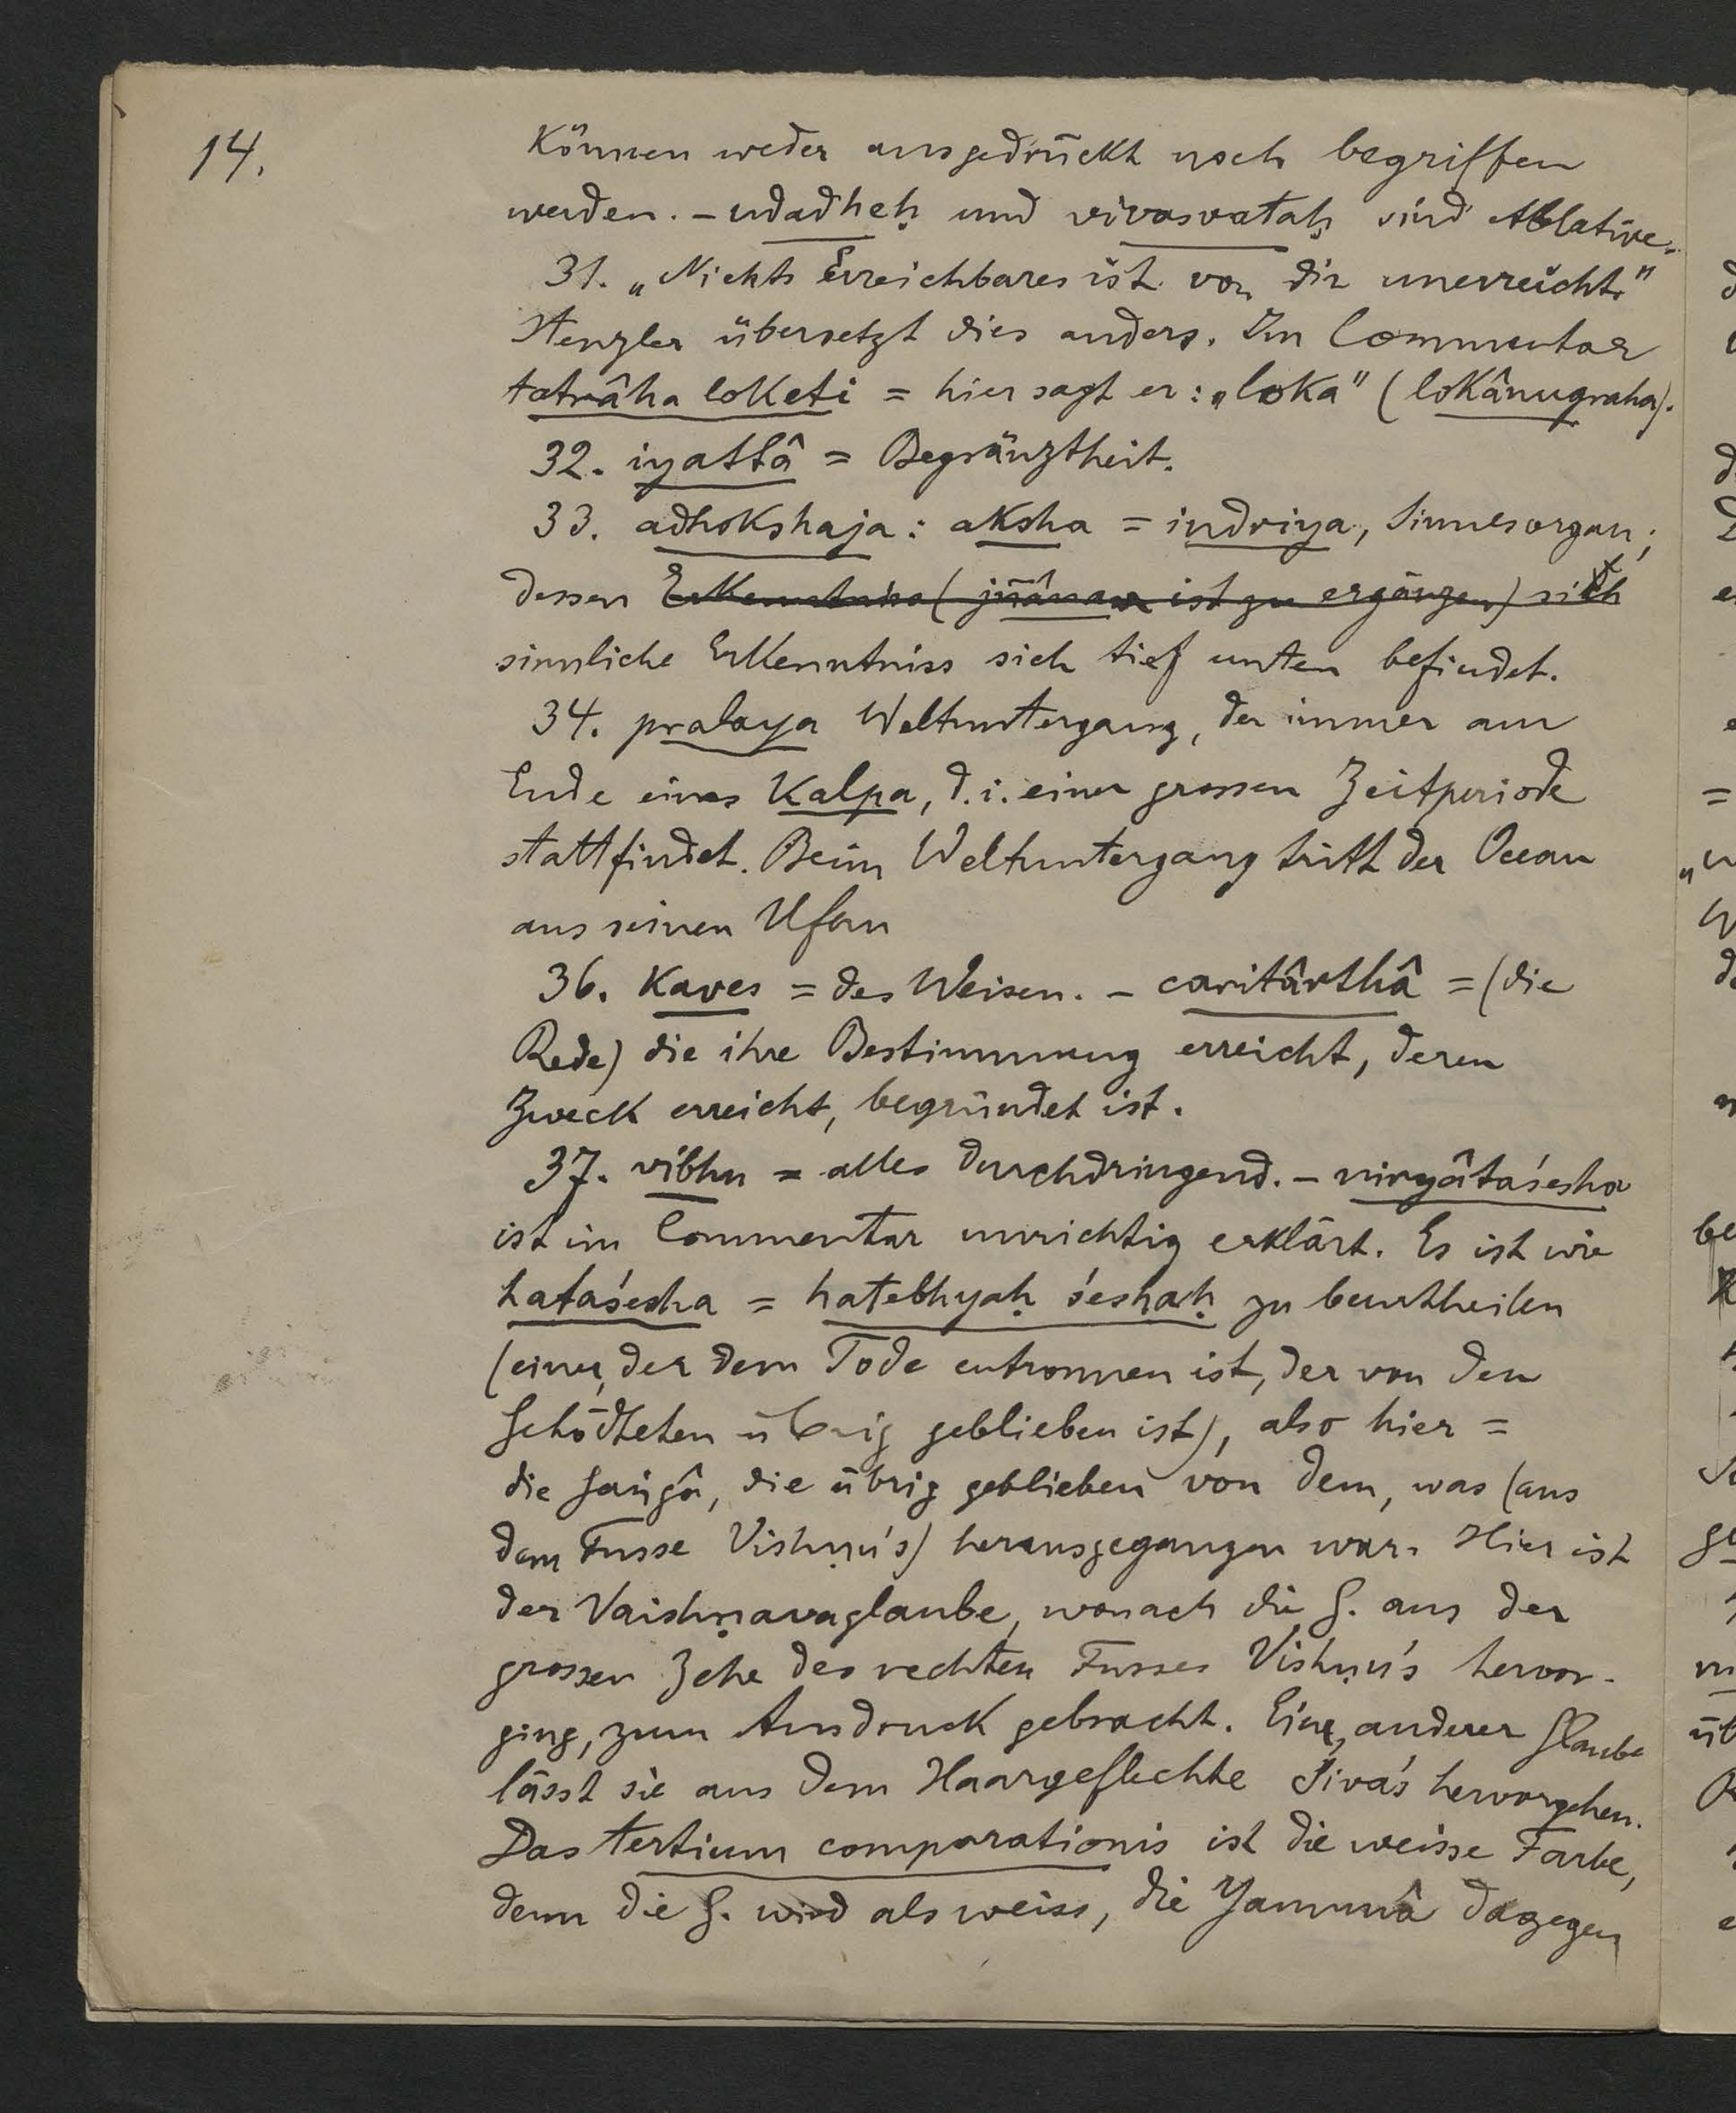 14.
können weder ausgedrückt noch begriffen
werden. – udadheḥ und vivasvataḥ sind Ablative.
31. „Nichts Erreichbares ist von dir unerreicht."
Stenzler übersetzt dies anders. Im Commentar
tatrâha loketi = hier sagt er: „loka" (lokânugraha).
32. iyattâ = Begränztheit.
33. adhokshaja: aksha = indriya, Sinnesorgan;
dessen Erkenntniss (jñânam ist zu ergänzen) sich
sinnliche Erkenntniss sich tief unten befindet.
34. pralaya Weltuntergang, der immer am
Ende eines Kalpa, d. i. einer grossen Zeitperiode
stattfindet. Beim Weltuntergang tritt der Ocean
aus seinen Ufern
36. Kaves = des Weisen. – caritârthâ = (die
Rede) die ihre Bestimmung erreicht, deren
Zweck erreicht, begründet ist.
37. vibhu = alles durchdringend. – niryâtaśesha
ist im Commentar unrichtig erklärt. Es ist wie
hataśesha = hatebhyaḥ śeshaḥ zu beurtheilen
(einer, der dem Tode entronnen ist, der von den
Getödteten übrig geblieben ist), also hier =
die Gaṅgâ, die übrig geblieben von dem, was (aus
dem Fusse Vishṇu's) herausgegangen war. Hier ist
der Vaishṇavaglaube, wonach die G. aus der
grossen Zehe des rechten Fusses Vishṇu's hervor-
ging, zum Ausdruck gebracht. Ein anderer Glaube
lässt sie aus dem Haargeflechte Śiva's hervorgehen.
Das tertium comparationis ist die weisse Farbe,
denn die G. wird als weiss, die Yamunâ dagegen